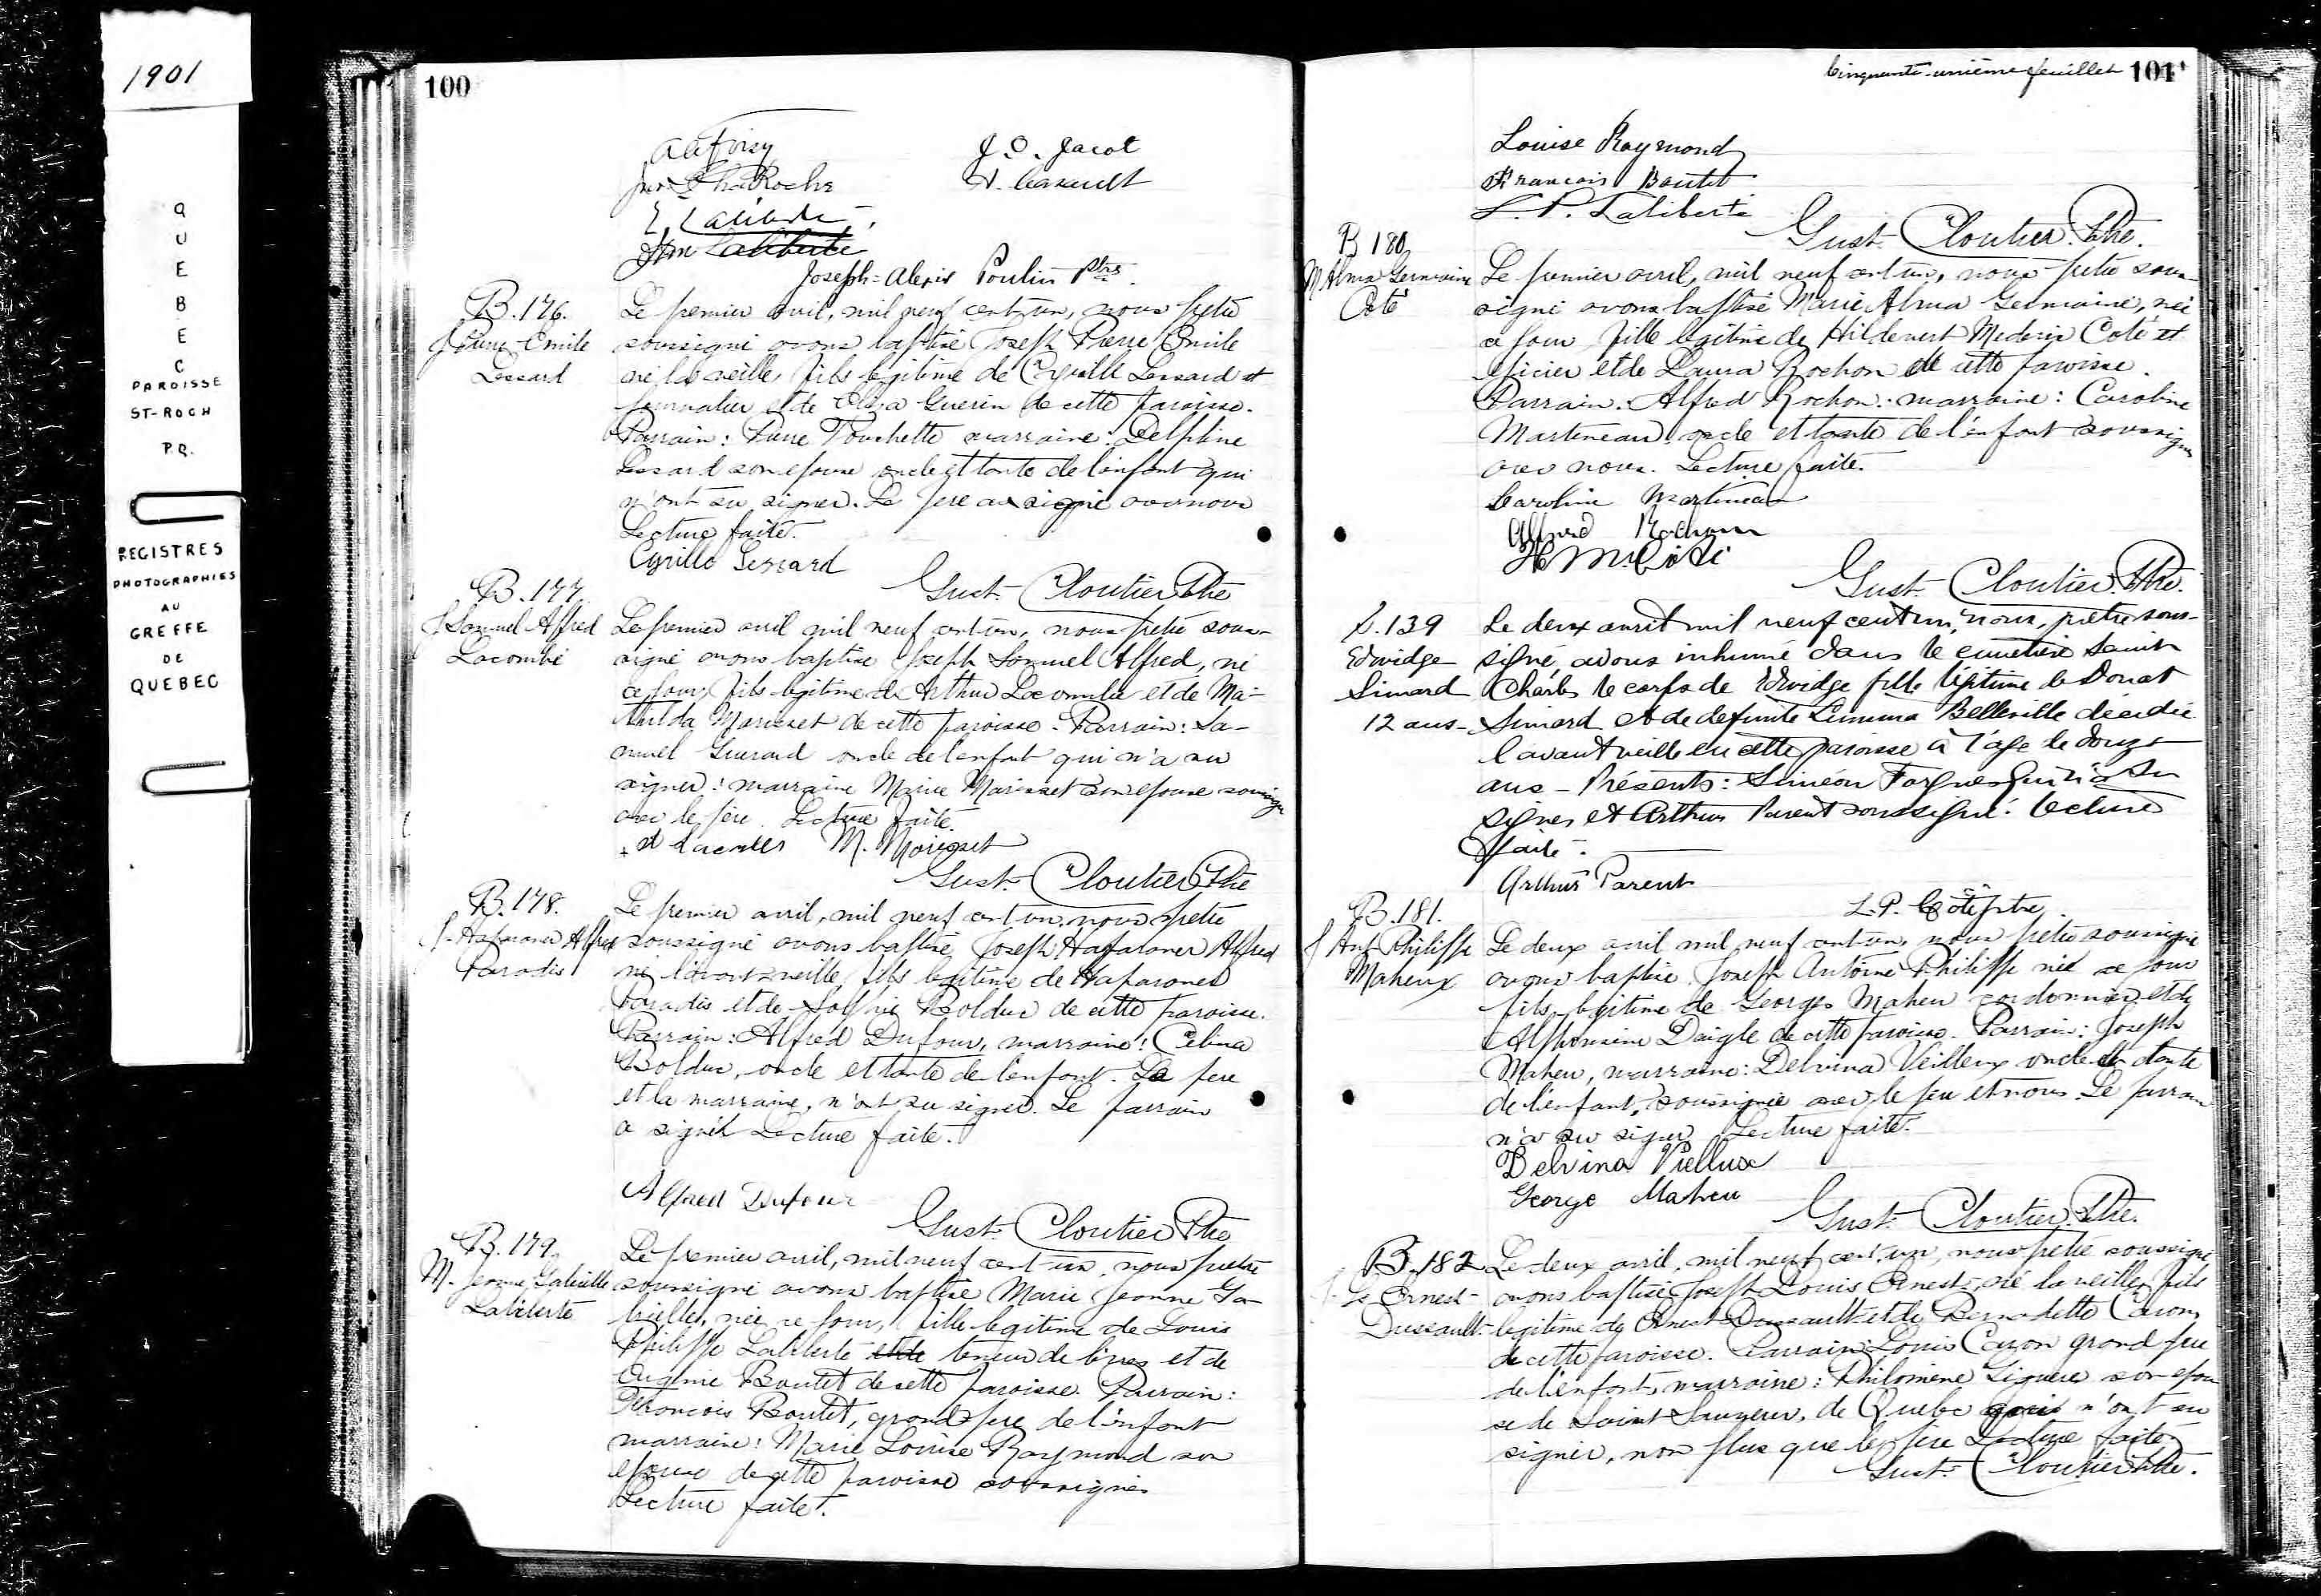 1901
QUEBEC
PAROISSE
ST-ROCH
P.Q.
REGISTRES
PHOTOGRAPHIES
AU
GREFFE
DE
QUEBEC
100
J. O. Jacot
Joseph-Alexis Poulin Ptre.
B.176.
J Pierre Emile
Lessard
Le premier avril, mil neuf cent un, nous prêtre
soussigné avons baptisé Joseph Pierre Emile
né la veille, fils legitime de Cyrille Lessard et
journalier et de Guerin de cette paroisse.
Parrain: Pierre Pouchette marraine: Delphine
Lessard son epouse oncle et tante de l'enfant qui
n'ont su signer. Le pere a signé avec nous
Lecture faite.
Cyrille Lessard
Gust. Cloutier Ptre
B.177.
J Samuel Alfred
Lacombe
Le premier avril mil neuf cent un, nous prêtre sous-
signé avons baptisé Joseph Samuel Alfred, né
ce jour, fils legitime de Arthur Lacombe et de Ma-
thilda Morisset de cette paroisse. Parrain: Sa-
muel Guerard oncle de l'enfant qui n'a su
signer: marraine Marie Morisset son epouse soussignée
avec le père. Lecture faite.
M. Morisset
Gust. Cloutier Ptre
B.178.
J. Alfred
Paradis
Le premier avril, mil neuf cent un, nous prêtre
soussigné avons baptisé Joseph Alfred
né l'avant veille, fils legitime de
Paradis et de Sophie Bolduc de cette paroisse.
Parrain: Alfred Dufour, marraine: Celina
Bolduc, oncle et tante de l'enfant. Le pere
et la marraine, n'ont su signer. Le parrain
a signé Lecture faite.
Alfred Dufour
Gust. Cloutier Ptre
B.179.
M. Jeanne Gabrielle
Laliberté
Le premier avril, mil neuf cent un, nous prêtre
soussigné avons baptisé Marie Jeanne Ga-
brielle, née ce jour, fille legitime de Louis
Philippe Laliberté et de teneur de livres et de
Eugenie Boutet de cette paroisse. Parrain:
Francois Boutet, grand-pere de l'enfant
marraine: Marie Louise Raymond son
epouse de cette paroisse soussignés
Lecture faite.
Cinquante-unième feuillet 101
Louise Raymond
Francois Boutet
L. P. Laliberté
Gust. Cloutier Ptre.
B 180
M Alma Germaine
Coté
Le premier avril, mil neuf cent un, nous prêtre sous-
signé avons baptisé Marie Alma Germaine, née
ce jour fille legitime de Hildevert Mederic Coté et
epicier et de Laura Rochon de cette paroisse.
Parrain: Alfred Rochon: marraine: Caroline
Martineau oncle et tante de l'enfant soussignés
avec nous. Lecture faite.
Caroline Martineau
Alfred Rochon
H M. Coté
Gust. Cloutier. Ptre.
S.139
Edwidge
Simard
12 ans-
Le deux avril mil neuf cent un, nous, prêtre sous-
signé, avons inhumé dans le cimetière Saint
Charles le corps de Edwidge fille légitime de Donat
Simard et de defunte Belleville décédée
l'avant veille en cette paroisse à l'age de douze
ans - Présents: Siméon Fargues qui n'a su
signer et Arthur Parent soussigné. Lecture
faite.
Arthur Parent
L. P. Côté ptre
B.181.
J Ant Philippe
Maheux
Le deux avril mil neuf cent un, nous prêtre soussigné
avons baptisé Joseph Antoine Philippe né ce jour
fils legitime de Georges Maheu cordonnier et de
Alphonsine Daigle de cette paroisse. Parrain: Joseph
Maheu, marraine: Delvina Veilleux oncle et tante
de l'enfant, soussignée avec le pere et nous. Le parrain
n'a su signer Lecture faite.
Delvina Viellux
George Maheu
Gust. Cloutier. Ptre.
B.182
Ls Ernest
Dussault
Le deux avril, mil neuf cent un, nous prêtre soussigné
avons baptisé Joseph Louis Ernest, né la veille, fils
legitime de Ernest Dussault et de Bernadette Caron
de cette paroisse. Parrain: Louis Caron grand pere
de l'enfant, marraine: Philomène Liguere son epou-
se de Saint Sauveur, de Quebec qui n'ont su
signer, non plus que le père Lecture faite
Gust. Cloutier Ptre.